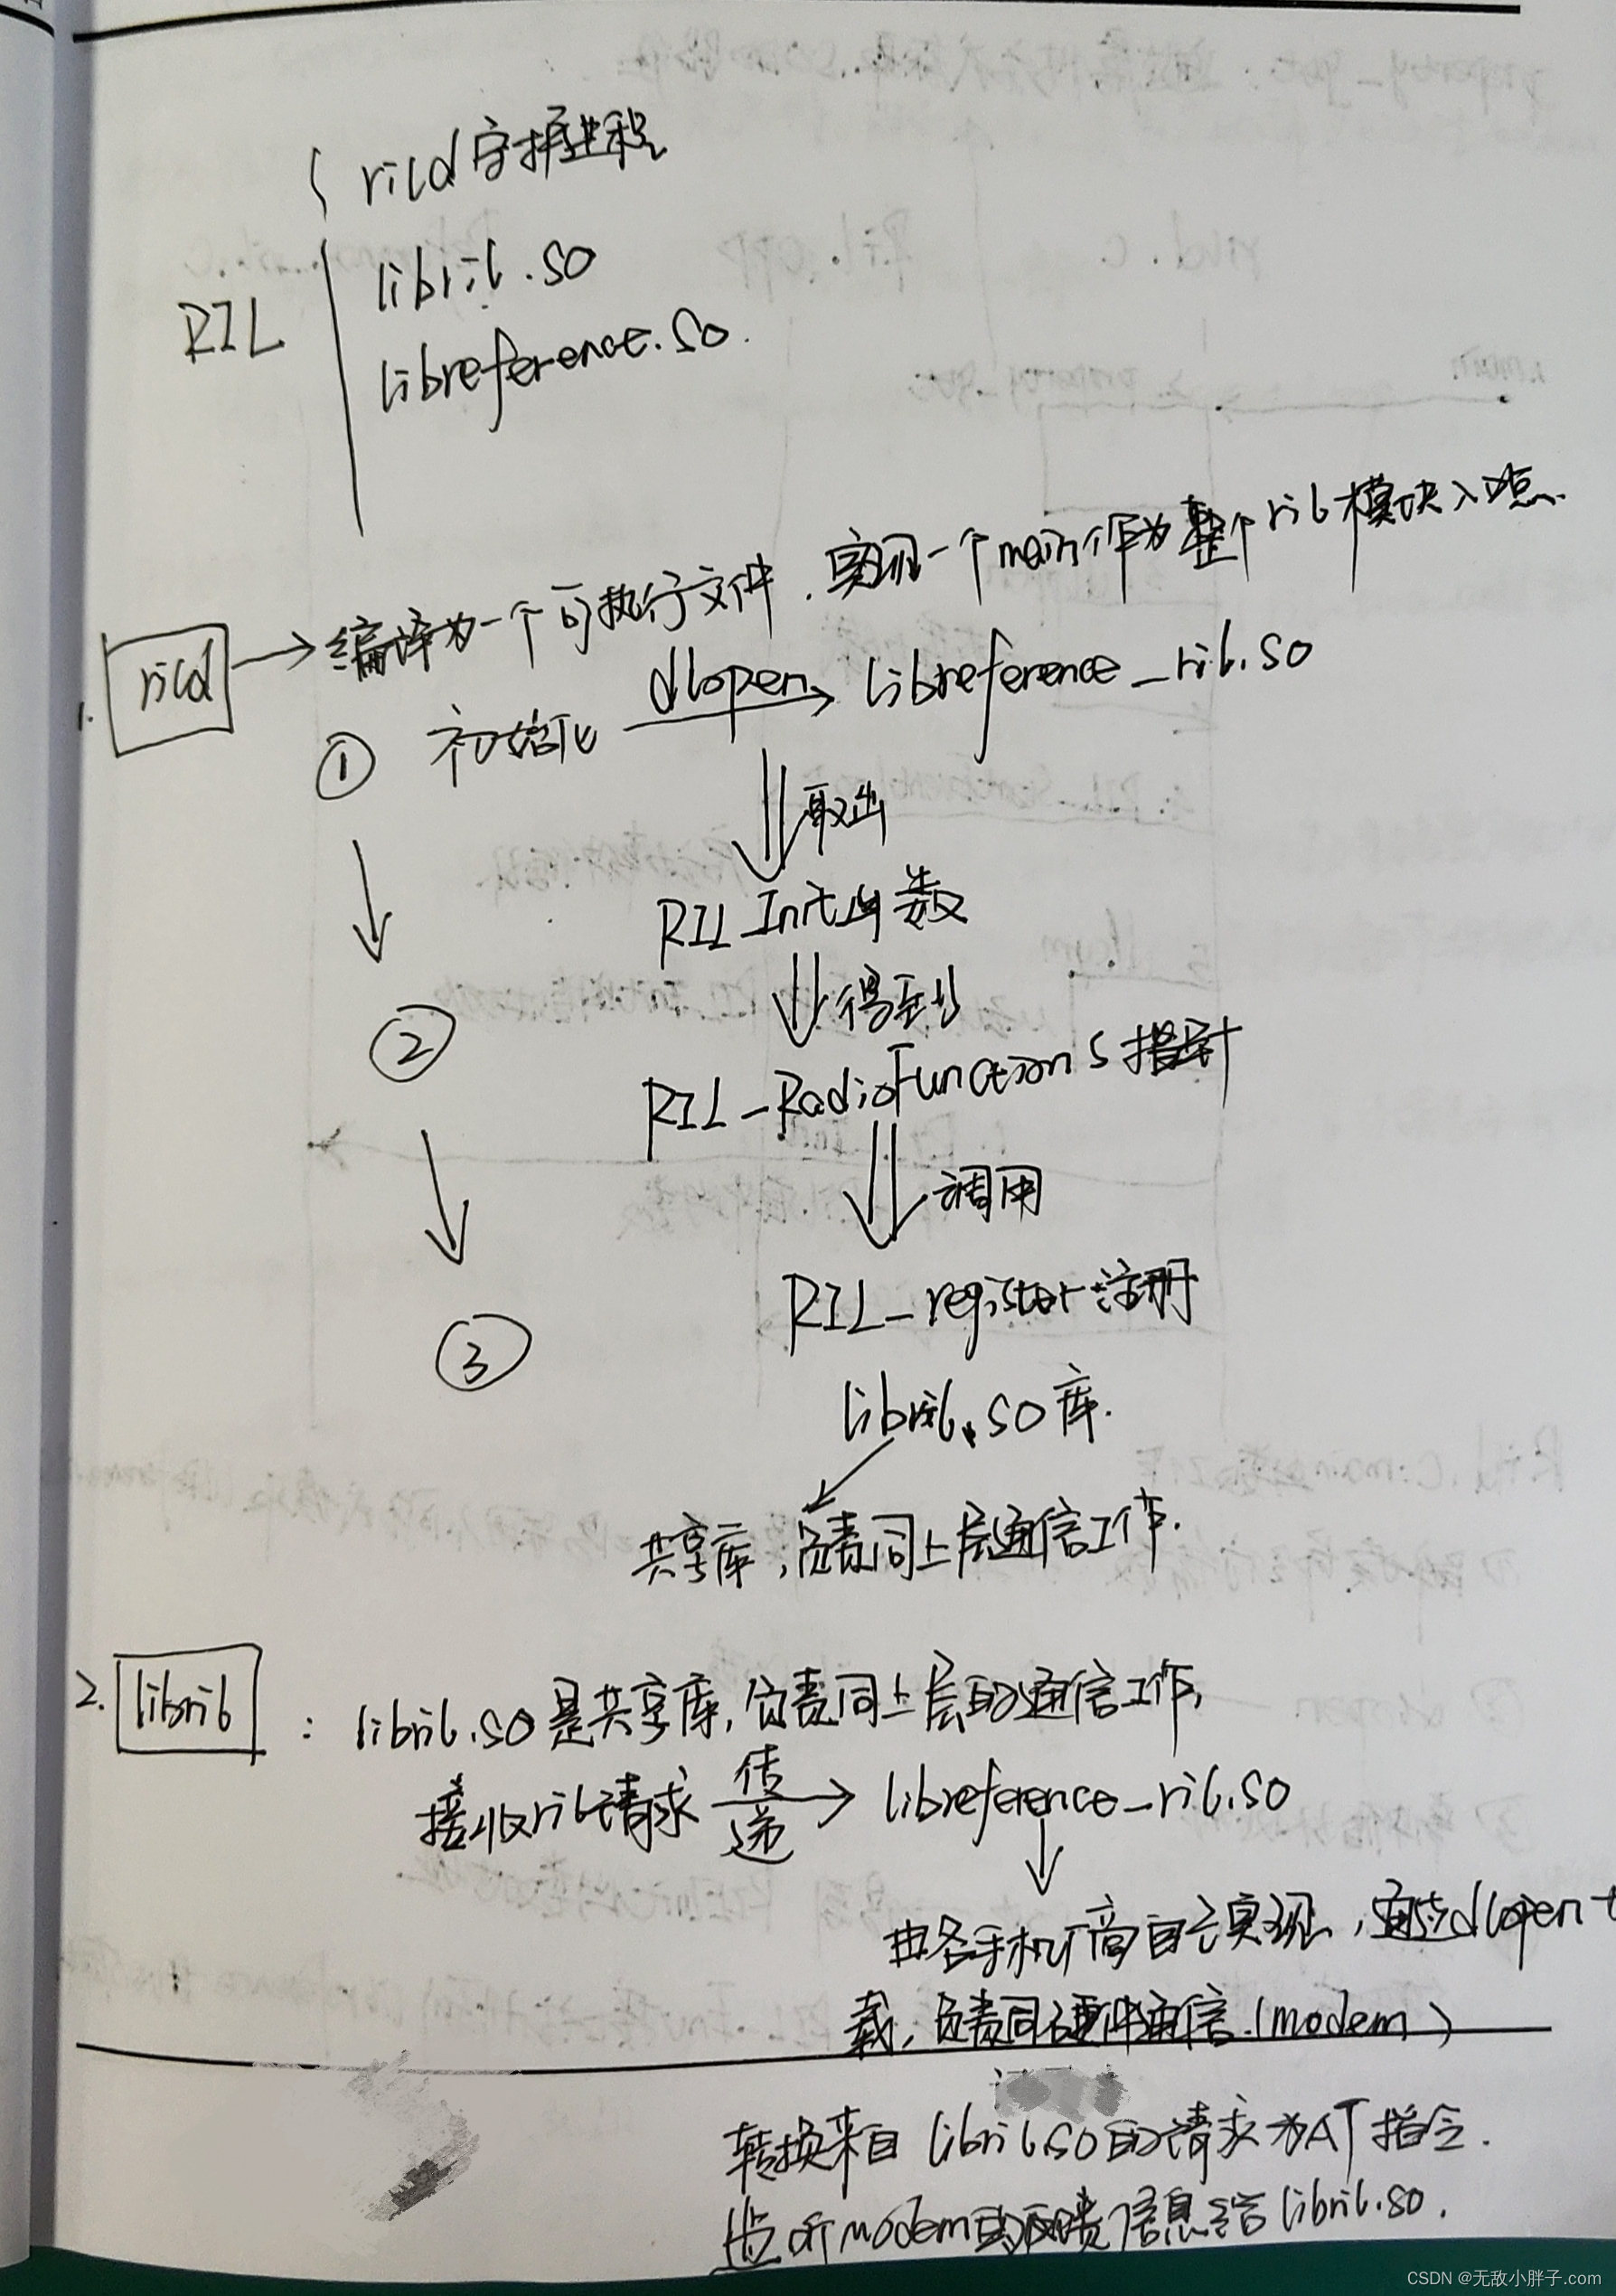 rild守护进程
RIL
libril.so
libreference.so.
1. rild → 编译为一个可执行文件. 实现一个main作为整个ril模块入口点.
① 初始化 dlopen → libreference_ril.so
取出
RIL_Init函数
② 得到
RIL_RadioFunctions指针
调用
③ RIL_register注册
libril.so库.
共享库,负责同上层通信工作.
2. libril : libril.so是共享库,负责同上层的通信工作,
接收ril请求 传递 → libreference_ril.so
由各手机厂商自己实现,通过dlopen
载,负责同硬件通信.(modem)
转换来自libril.so的请求为AT指令.
监听modem的反馈信息给libril.so.
CSDN @无敌小胖子.com